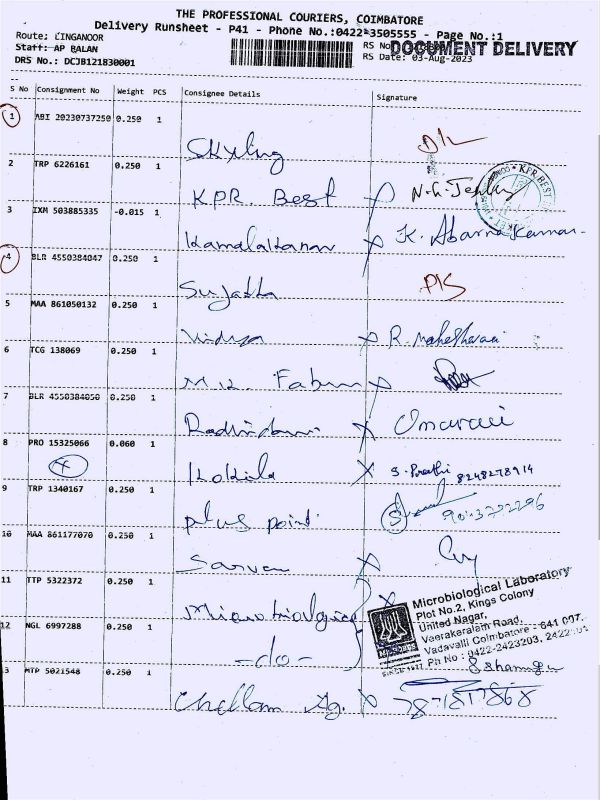 THE PROFESSIONAL COURIERS, COIMBATORE
Delivery Runsheet - P41 - Phone No.:0422-3505555 - Page No.:1
Route: LINGANOOR
Staff: AP BALAN
DRS No.: DCJB121830001
RS No
DOCUMENT DELIVERY
RS Date: 03-Aug-2023
S No Consignment No Weight PCS Consignee Details Signature
1 ABI 20230737250 0.250 1
2 TRP 6226161 0.250 1
KPR Best
KPR BEST
3 IXM 503885335 -0.015 1
Kamalakanan
4 BLR 4550384047 0.250 1
Sujatha
5 MAA 861050132 0.250 1
Vidya R. maheshwari
6 TCG 138069 0.250 1
7 BLR 4550384050 0.250 1
8 PRO 15325066 0.060 1
Kokila 8248278914
9 TRP 1340167 0.250 1
plus point
10 MAA 861177070 0.250 1
11 TTP 5322372 0.250 1
12 NGL 6997288 0.250 1
-do-
Microbiological Laboratory
Plot No.2, Kings Colony
United Nagar,
Veerakeralam Road,
Vadavalli Coimbatore - 641 007.
Ph No : 0422-2423203,
SINCE 1977
MTP 5021548 0.250 1
Chellam Ag.